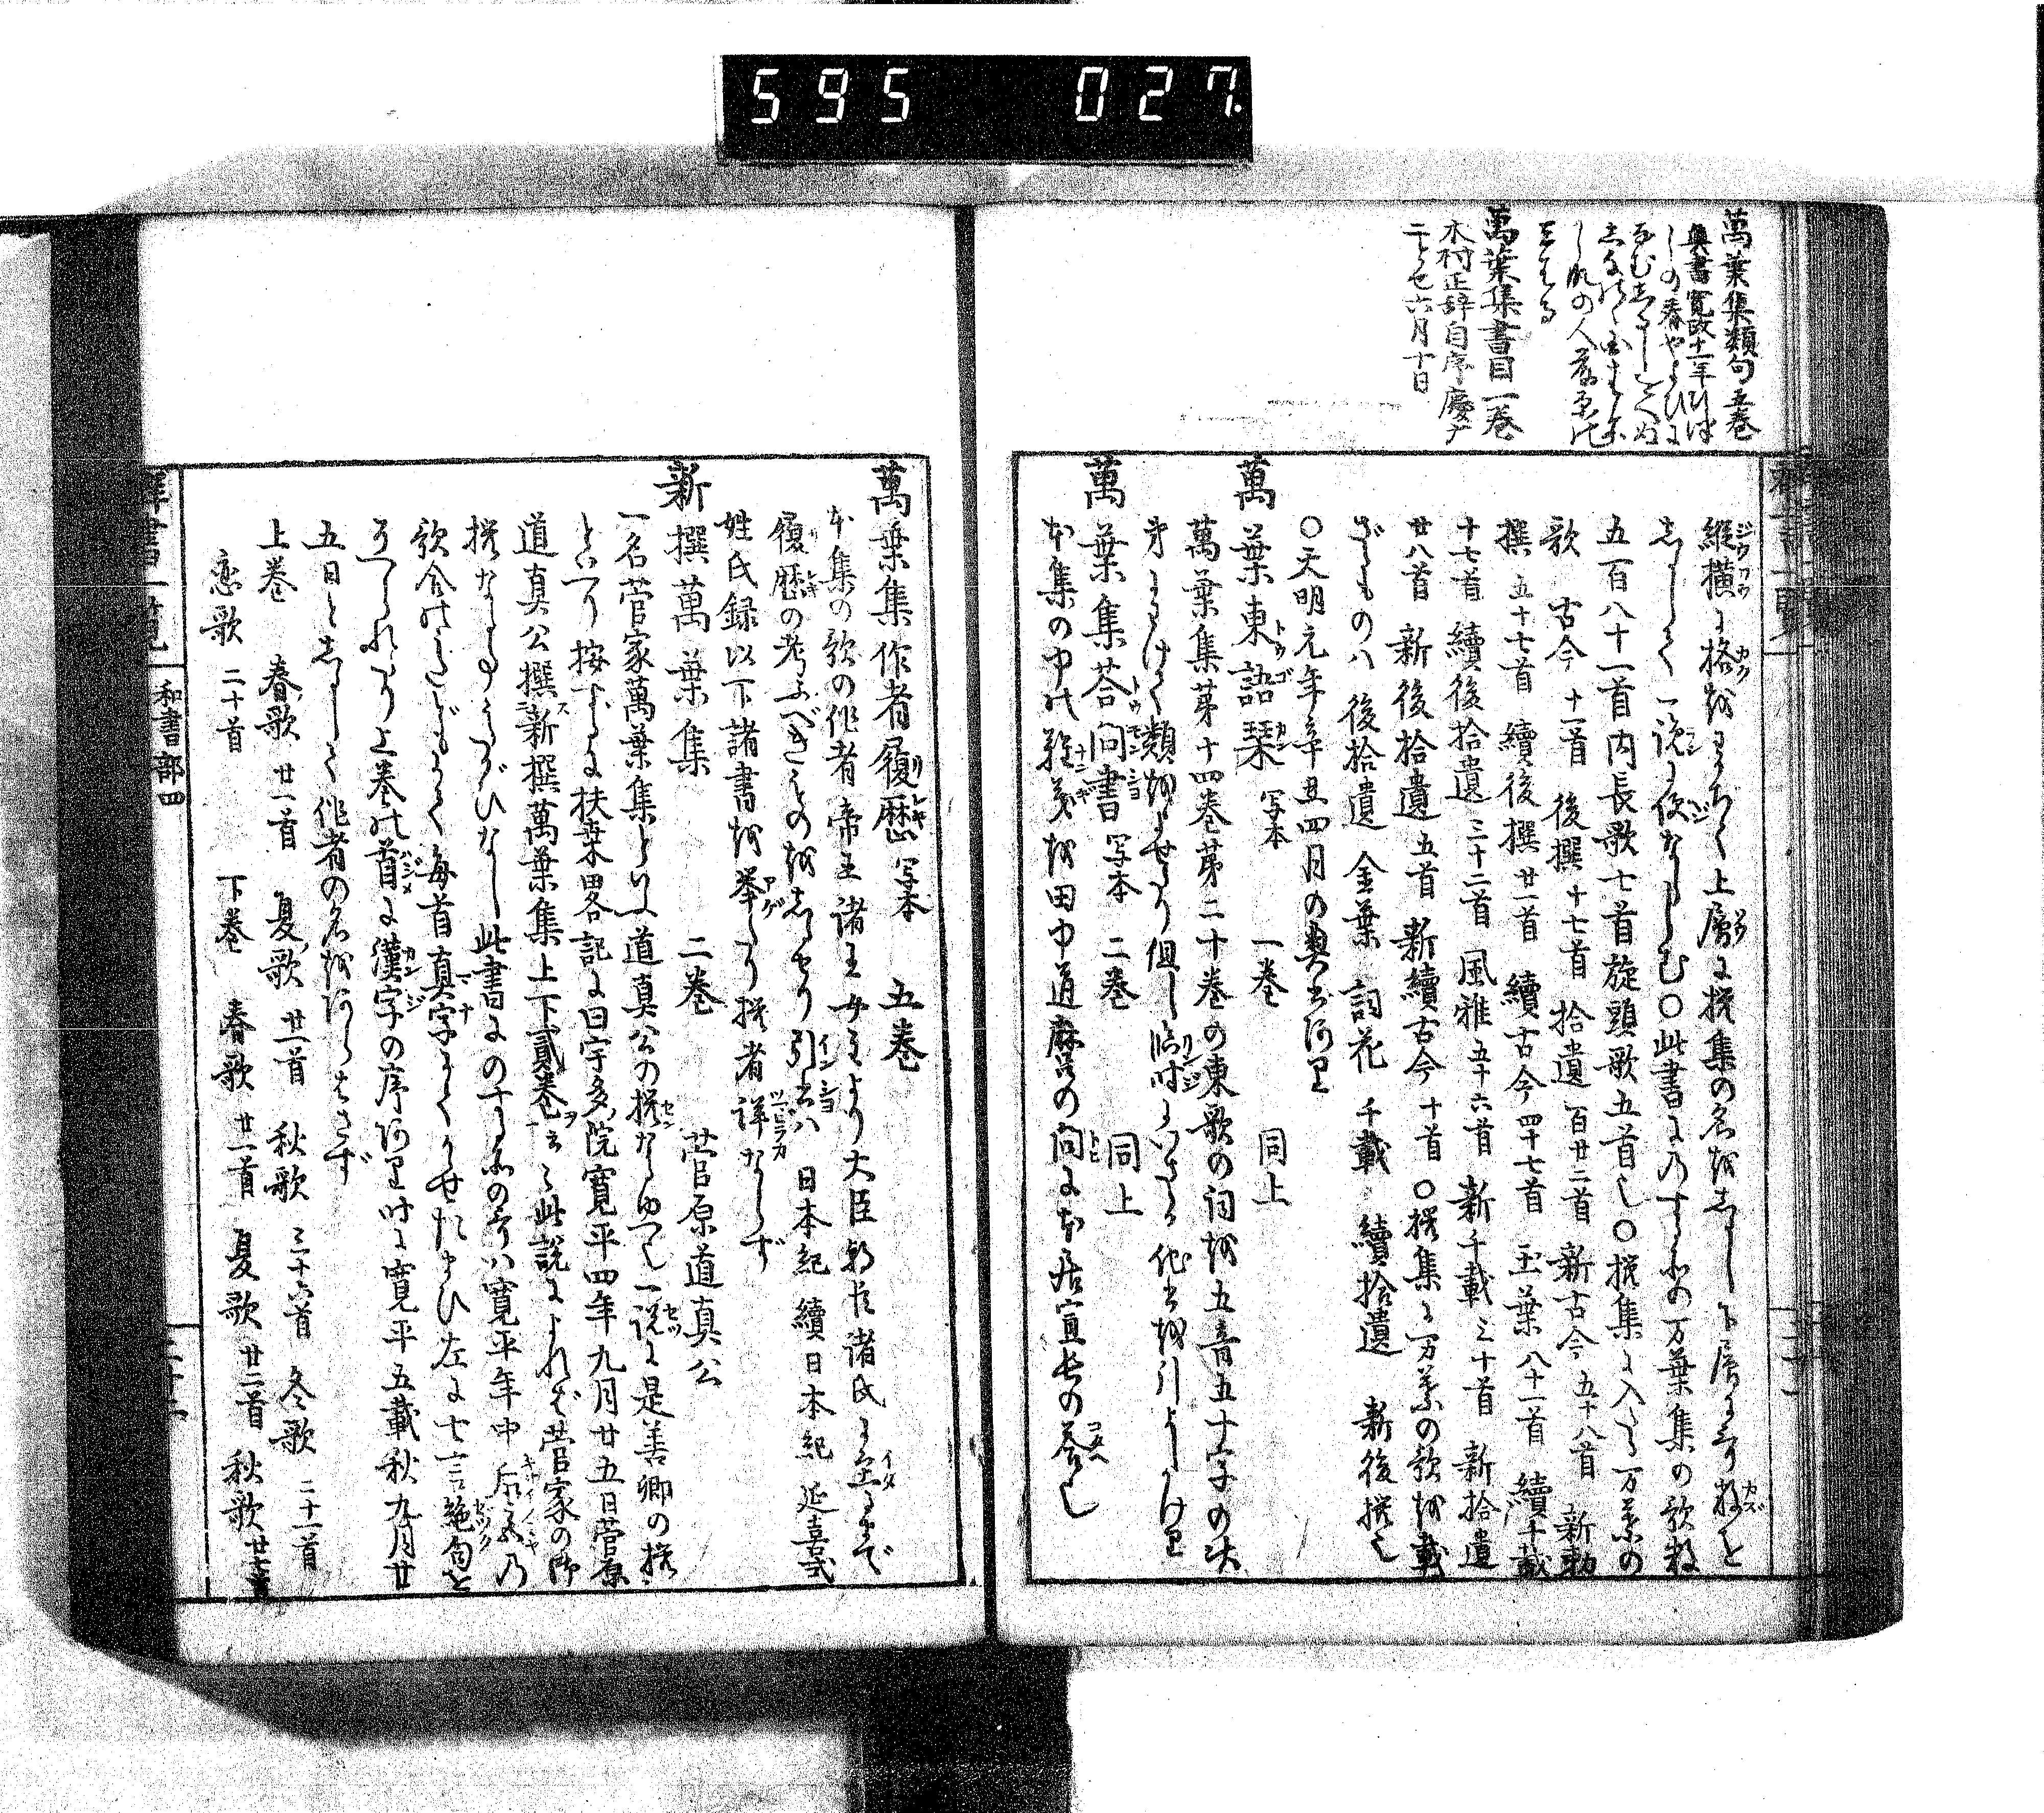 595 027.
萬葉集類句五巻
奥書寛政十一年
しの春やよひに
萬葉集書目一巻
木村正辞自序慶
二とせ六月十日
縦横に格をわかちて上層に撰集の名をしるし下層に哥数を
しるして一覧に便ならしむ〇此書にのする所の万葉集の歌数
五百八十一首内長歌七首旋頭歌五首也〇撰集に入たる万葉の
歌 古今 十一首 後撰 廿七首 拾遺 百廿二首 新古今 五十八首 新勅
撰 五十七首 續後撰 廿一首 續古今 四十七首 玉葉 八十一首 續千載
十七首 續後拾遺 三十二首 風雅 五十六首 新千載 三十首 新拾遺
廿八首 新後拾遺 五首 新續古今 十首 〇撰集に万葉の歌を載
ざるものハ 後拾遺 金葉 詞花 千載 續拾遺 新後撰也
〇天明元年辛丑四月の奥書あり
萬葉東語栞 写本 一巻 同上
萬葉集第十四巻第二十巻の東歌の詞を五音五十字の次
第にわけて類をよせたり但し臨時にいさゝか他書を引よしかけり
萬葉集荅問書 写本 二巻 同上
本集の中の難義を田中道麻呂の問に本居宣長の答也
萬葉集作者履歴 写本 五巻
本集の歌の作者帝王諸王女王より大臣朝臣諸氏に至るまで
履歴の考ふべきものをしるせり引書ハ 日本紀 續日本紀 延喜式
姓氏録以下諸書を挙たり撰者詳ならず
新撰萬葉集 二巻 菅原道真公
一名菅家萬葉集といふ道真公の撰なるゆへ也一説に是善卿の撰
といへり按ずるに扶桒畧記に曰宇多院寛平四年九月廿五日菅原
道真公撰新撰萬葉集上下貳巻云々此説によれバ菅家の御
撰なる事うたがひなし此書にのする所の哥ハ寛平年中后宮乃
歌合のうたどもにて毎首真字にてかゝせたまひ左に七言絶句を
そへられたり上巻の首に漢字の序あり時に寛平五載秋九月廿
五日としるして作者の名をあらハさず
上巻 春歌 廿一首 夏歌 廿一首 秋歌 三十六首 冬歌 二十一首
恋歌 二十首 下巻 春歌 廿一首 夏歌 廿二首 秋歌
群書一覧 和書部四